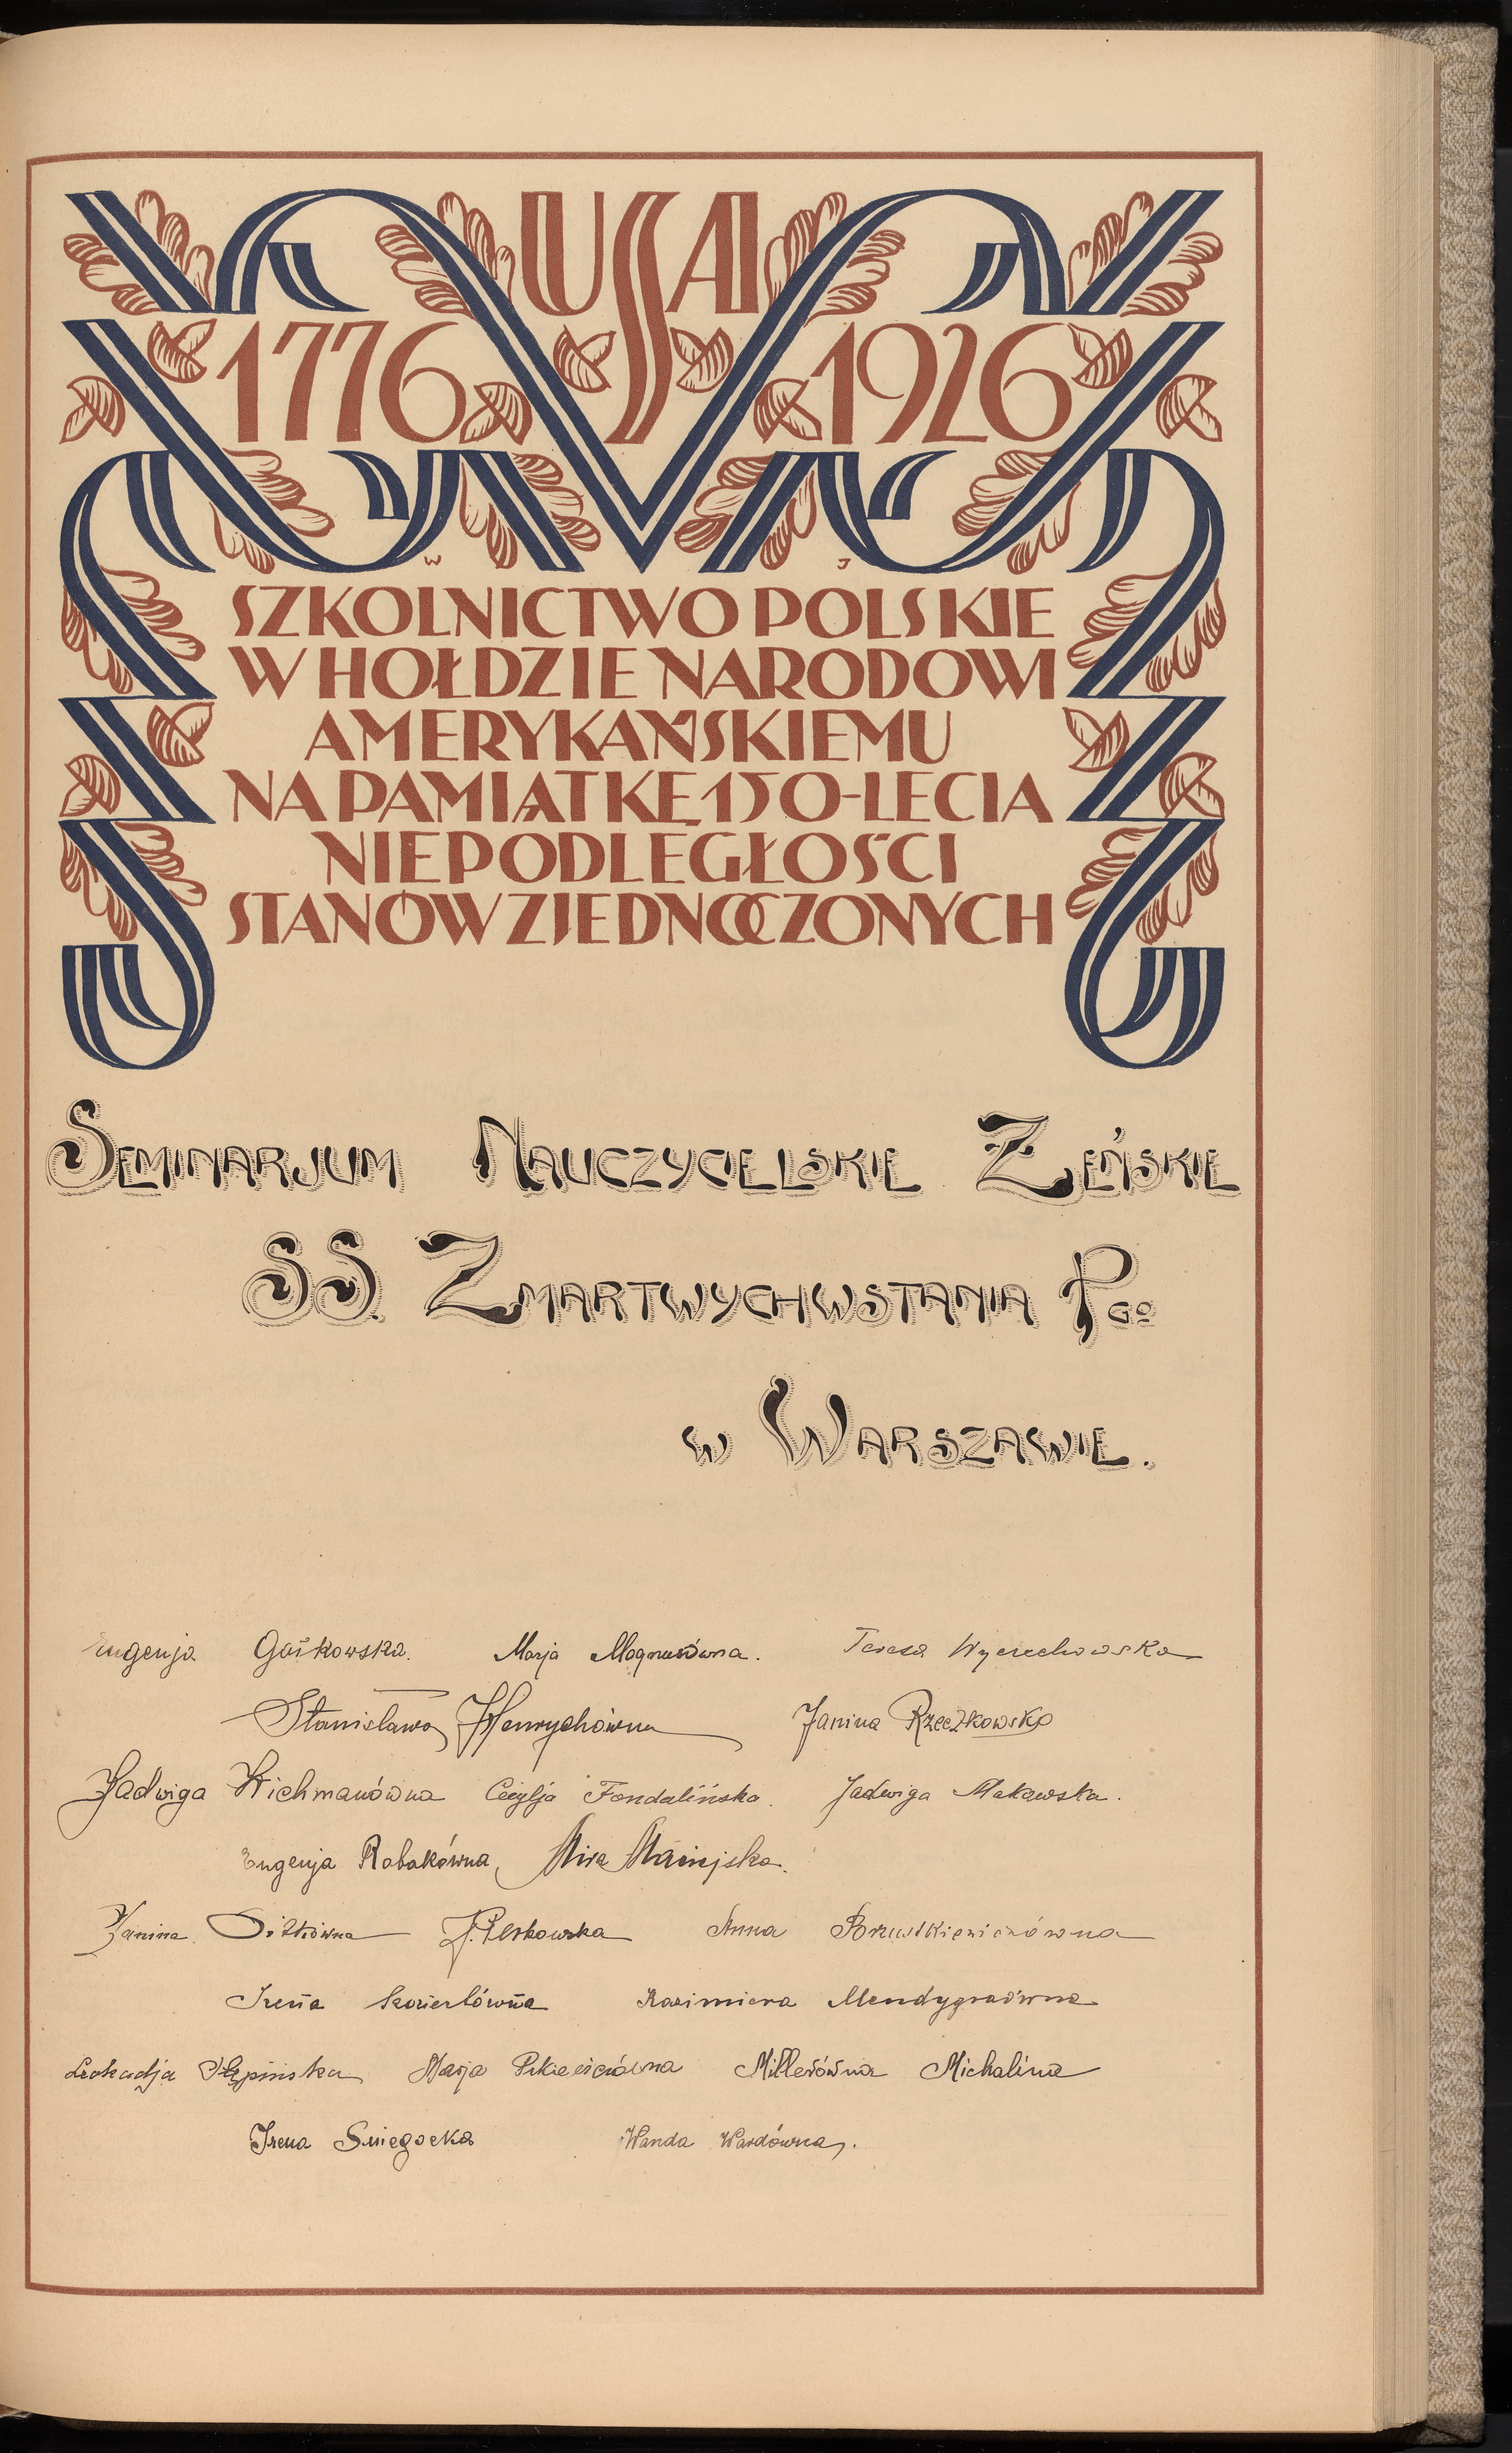 USA
1776 1926
W J
SZKOLNICTWO POLSKIE
W HOŁDZIE NARODOWI
AMERYKAŃSKIEMU
NA PAMIĄTKĘ 150-LECIA
NIEPODLEGŁOŚCI
STANÓW ZJEDNOCZONYCH
SEMINARJUM NAUCZYCIELSKIE ŻEŃSKIE
SS. ZMARTWYCHWSTANIA PGO
W WARSZAWIE.
Eugenja Gośkowska. Marja Magnusówna. Teresa Wyciechowska
Stanisława Henrychówna Janina Rzeczkowska
Jadwiga Wichmanówna Cecylja Fondalińska. Jadwiga Makowska.
Eugenja Robakówna, Mira Maciejska.
Janina Anna Brzustkiewiczówna
Irena Kozierłówna Kazimiera Mendygraówna
Leokadja Stępińska Marja Millerówna Michalina
Irena Śniegocka Wanda Wardówna.